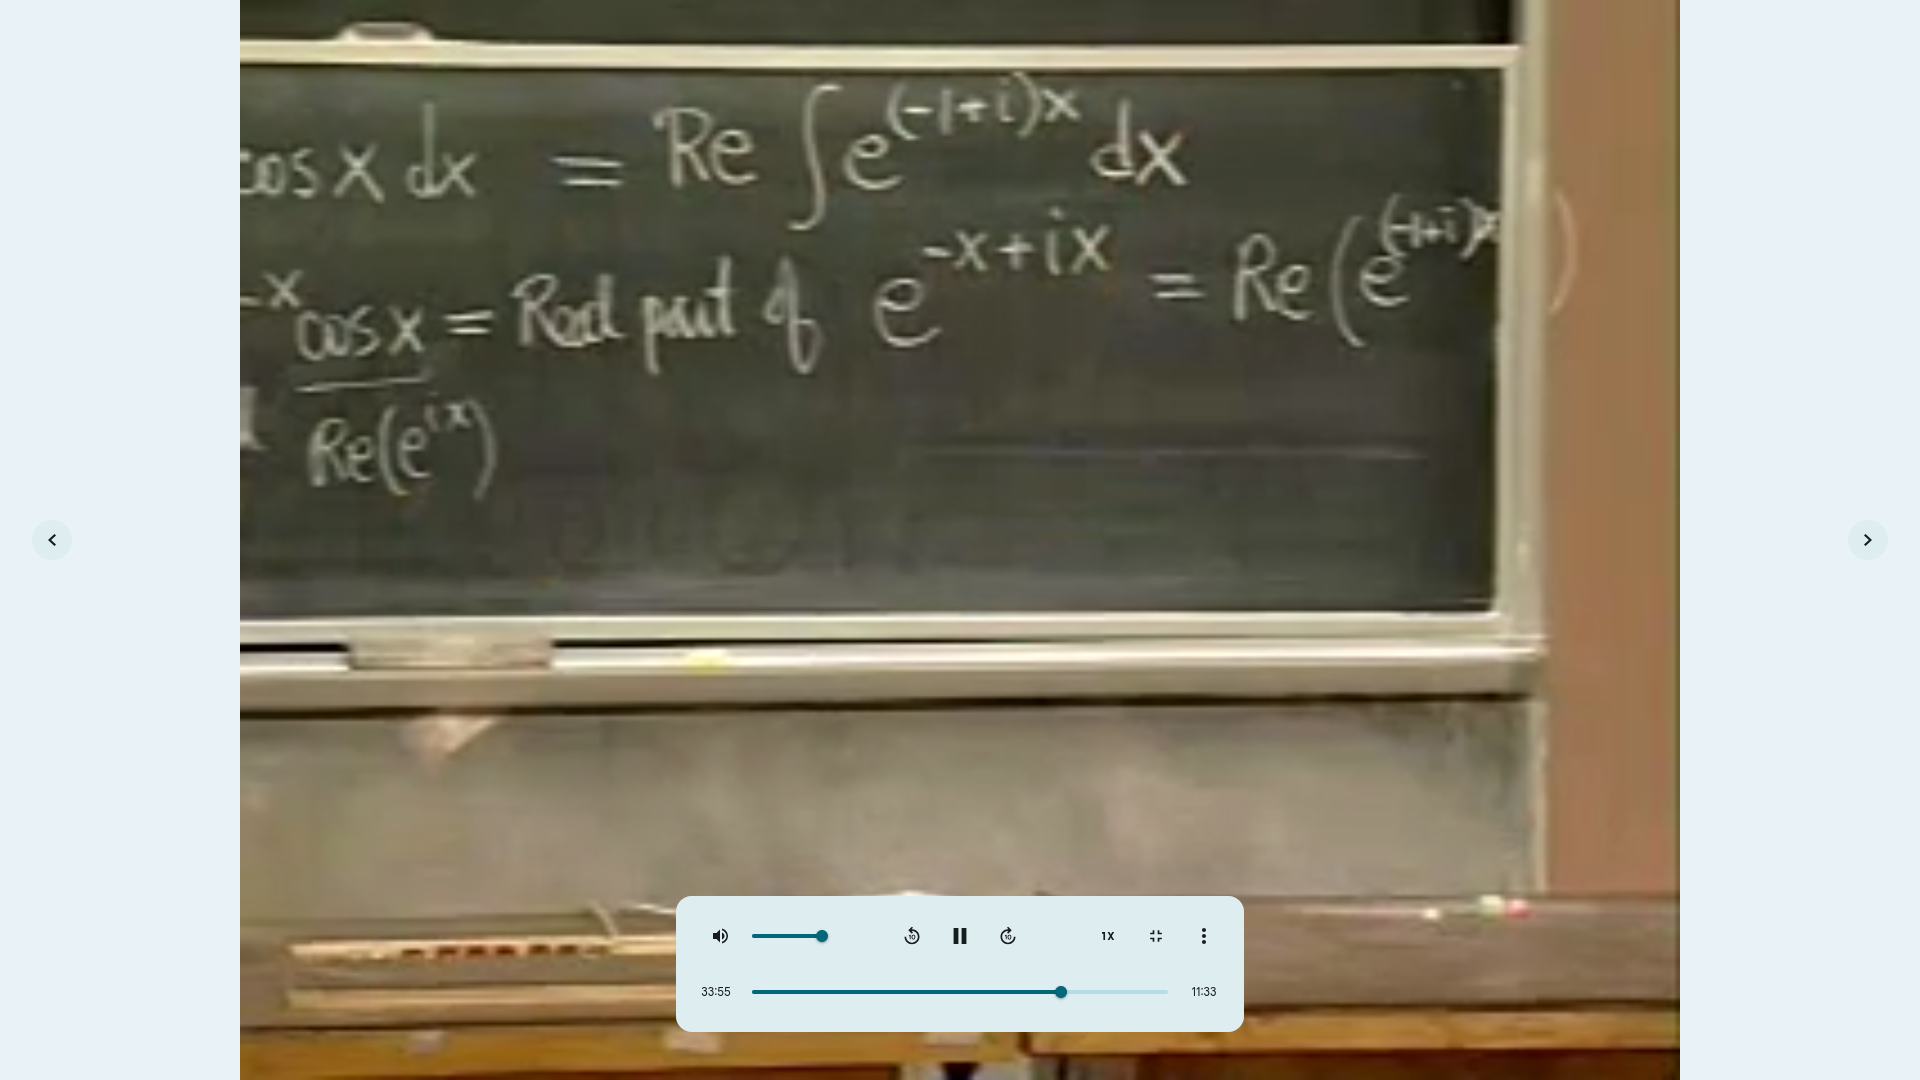 cos x dx = Re ∫ e^{(-1+i)x} dx
-x cos x = Real part of e^{-x+ix} = Re(e^{(-1+i)x})
Re(e^{ix})
10
10
1X
33:55
11:33